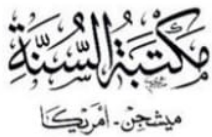 مكتبة السنة
ميشجن - أمريكا